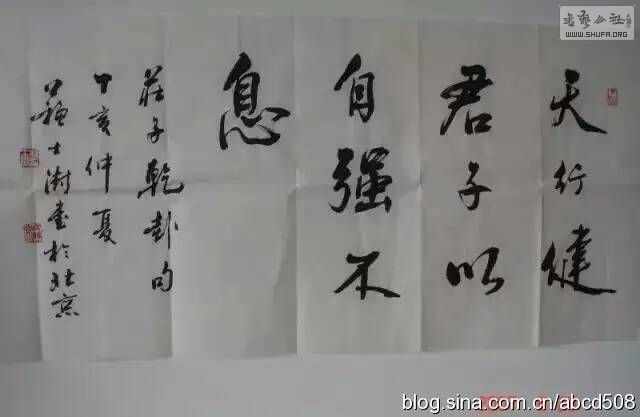 天行健
君子以
自强不
息
莊子乾卦句
丁亥仲夏
蘇士澍書於北京
書藝公社
WWW.SHUFA.ORG
blog.sina.com.cn/abcd508